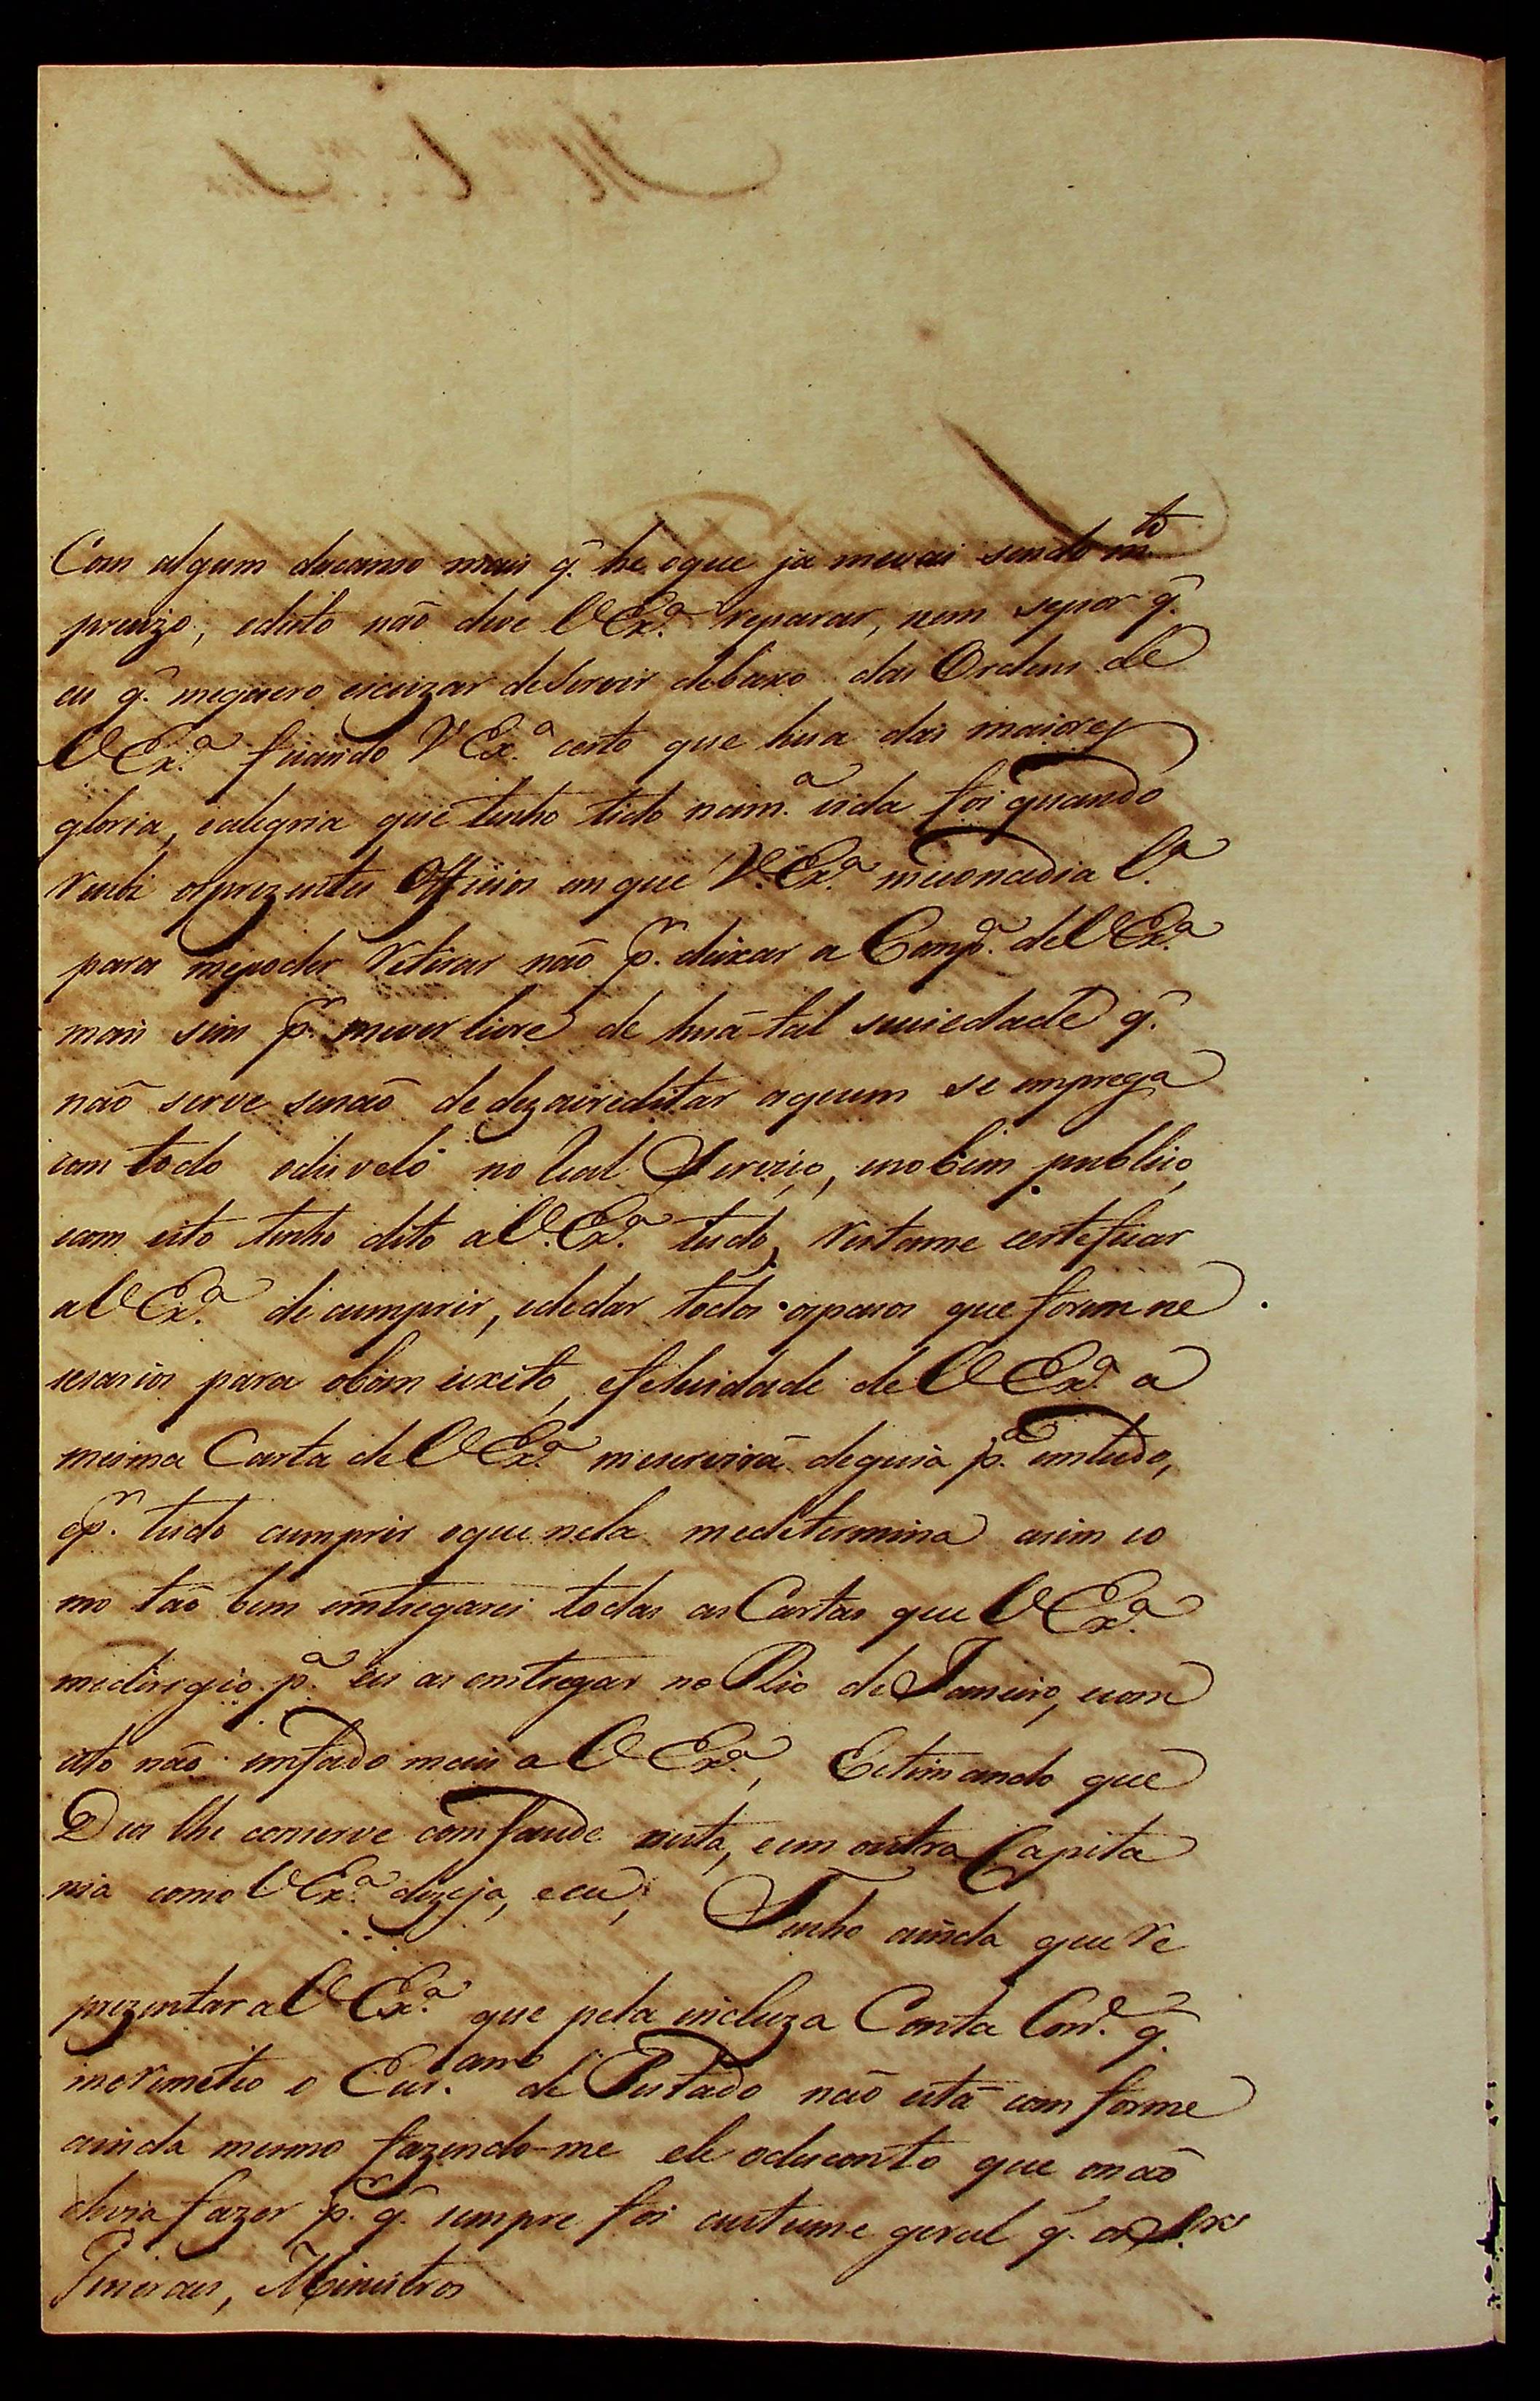 Com algum descanso mais q̃. he oque ja mevai sendo m.to
precizo, edisto não deve V Ex.ª reparar, nem sepor q̃.
eu q̃. mequero escuzar deservir debaxo das Ordens de
V Ex.ª ficando V Ex.ª certo que hua das maiores
gloria, ealegria que tenho tido nam.ª vida foi quando
recebi osprezentes Officios emque V. Ex.ª meconcedia L.ª
para mepoder retirar não p.r deixar a Comp.ª deV Ex.ª
mais sim p.r mever livre de huã tal suciedade q̃.
não serve senão de dezacreditar aquem se emprega
com todo odisvelo no Real Serviço, enobem publico,
com isto tenho dito aV. Ex.ª tudo, restame certeficar
aV Ex.ª de cumprir, ededar todos ospasos que forem ne
sesarios para obom euxito, efelicidade de V Ex.ª a
mesma Carta de V Ex.ª meservirá deguia p.ª emtudo,
ep.r tudo cumprir oque nela medetermina asim co
mo tão bem emtregarei todas as Cartas que V Ex.ª
medirigio p.ª eu as emtregar no Rio de Janeiro, ecom
isto não emfado mais a V Ex.ª, Estimando que
Deus lhe conserve com saude nesta, eem outra Capita
nia como V Ex.ª dezeja, eeu, Tenho ainda que re
prezentar aV Ex.ª que pela incluza Conta Corr.e q̃.
meremeteo o Escr.am de Pustado não está comforme
ainda mesmo fazendo-me ele odesconto que onão
devia fazer p.r q̃. sempre foi custume geral q̃. os S.res
Generaes, Ministros